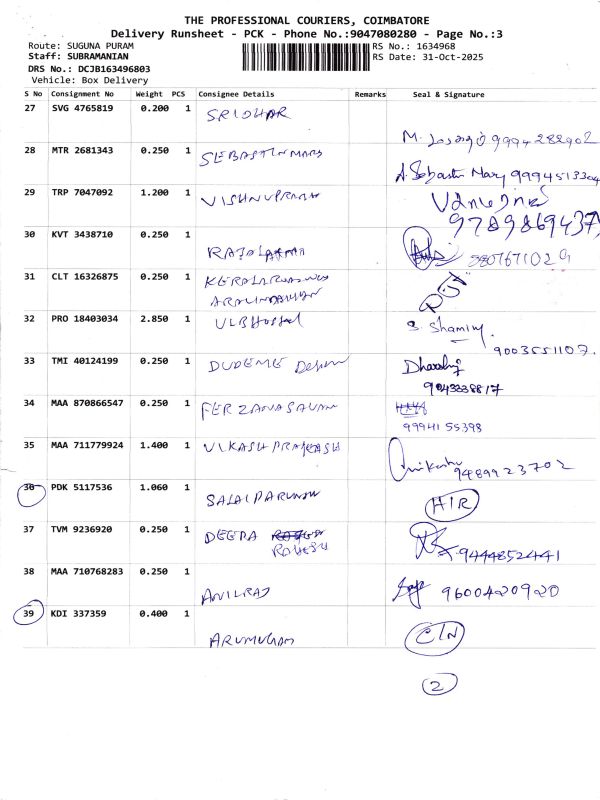 THE PROFESSIONAL COURIERS, COIMBATORE
Delivery Runsheet - PCK - Phone No.:9047080280 - Page No.:3
Route: SUGUNA PURAM RS No.: 1634968
Staff: SUBRAMANIAN RS Date: 31-Oct-2025
DRS No.: DCJB163496803
Vehicle: Box Delivery
S No Consignment No Weight PCS Consignee Details Remarks Seal & Signature
27 SVG 4765819 0.200 1 SRIDHAR
M. 9994282902
28 MTR 2681343 0.250 1 SEBASTIN MARY
A. Sebastin Mary 9994513304
29 TRP 7047092 1.200 1 VISHNUPRABHA
9789869437
30 KVT 3438710 0.250 1
RAJALAKSHMI 9807671029
31 CLT 16326875 0.250 1 KERALA
32 PRO 18403034 2.850 1 ULB Hostel S. Shamily
9003551107.
33 TMI 40124199 0.250 1 DUDEME Design Dharshij
9043838817
34 MAA 870866547 0.250 1 FERZANA
99941 55398
35 MAA 711779924 1.400 1 VIKASH PRAKASH
9489923702
36 PDK 5117536 1.060 1 SALAI
H/R
37 TVM 9236920 0.250 1 DEEPA
RAKESH 9444852441
38 MAA 710768283 0.250 1
ANILRAJ 9600420920
39 KDI 337359 0.400 1
ARUMUGAM C/N
2